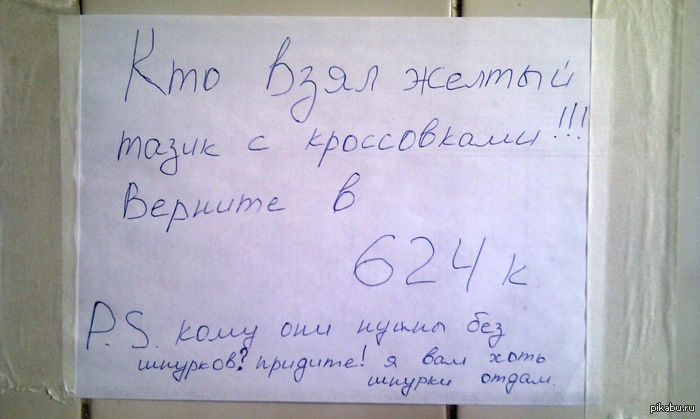 Кто взял желтый
тазик с кроссовками!!!
Верните в
624 к
P.S. кому они нужны без
шнурков? придите! я вам хоть
шнурки отдам.
pikabu.ru